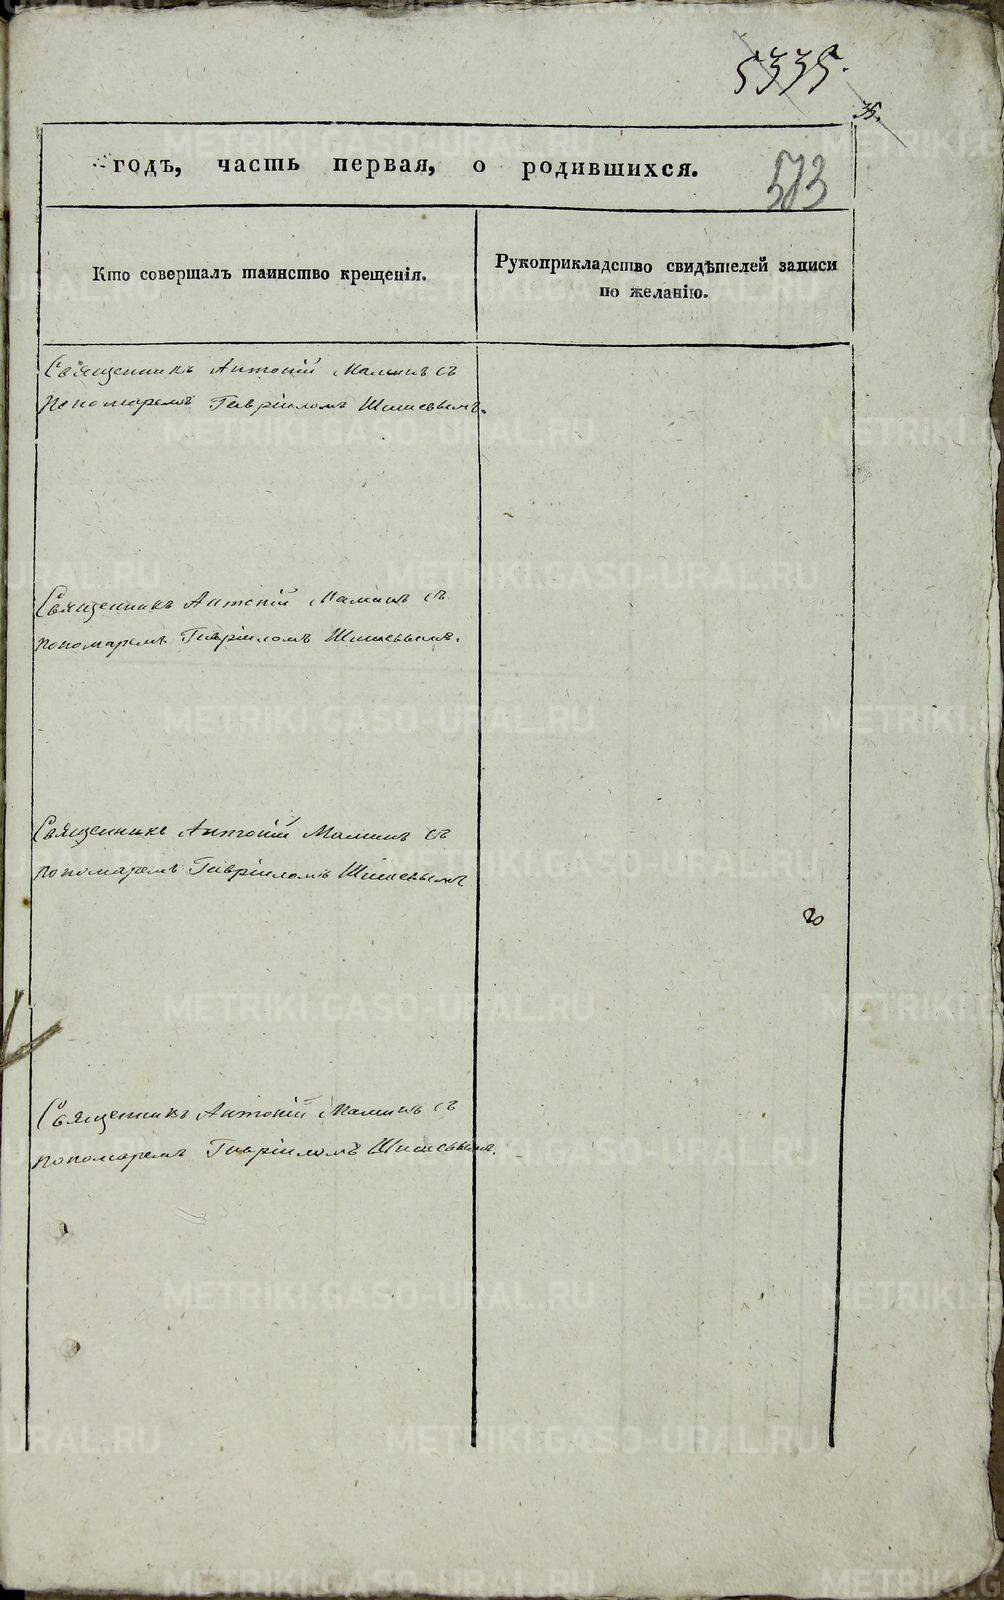 5335.
35.
годъ, часть первая, о родившихся.
513
Кто совершалъ таинство крещенія.
Рукоприкладство свидѣтелей записи
по желанію.
Священникъ Антоній Маминъ съ
Пономаремъ Гавріиломъ Шишевымъ.
Священникъ Антоній Маминъ съ
пономаремъ Гавріиломъ Шишевымъ.
Священникъ Антоній Маминъ съ
пономаремъ Гавріиломъ Шишевымъ
Священникъ Антоній Маминъ съ
пономаремъ Гавріиломъ Шишевымъ.
METRIKI.GASO-URAL.RU